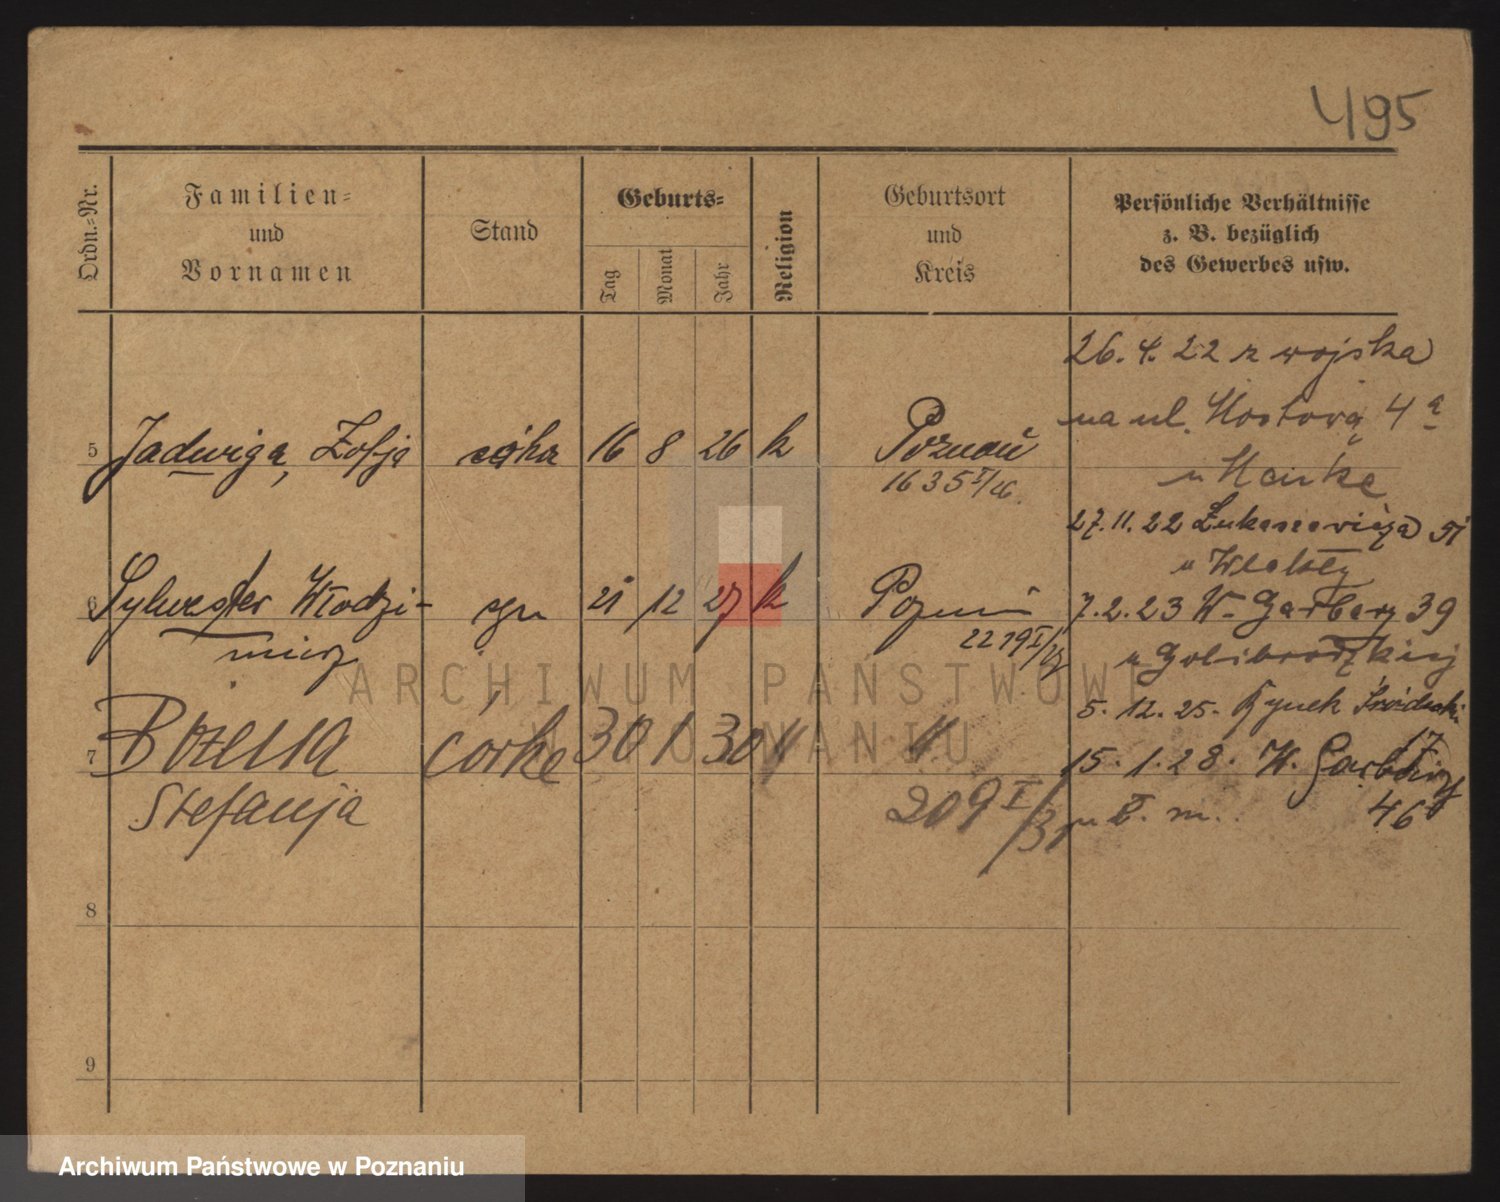 495
Ordn.-Nr.
Familien-
und
Vornamen
Stand
Geburts-
Tag
Monat
Jahr
Religion
Geburtsort
und
Kreis
Persönliche Verhältnisse
z. B. bezüglich
des Gewerbes usw.
26. 4. 22 z wojska
na ul. Mostową 4 a
5 Jadwiga, Zofja córka 16 8 26 k Poznań
1635 I/26
u Manke
27. 11. 22 Łukaszewicza 51
u
6 Sylwester Włodzi- syn 21 12 27 k Poznań
mierz
2219 I/27
7. 2. 23 W. Garbary 39
u
5. 12. 25. Rynek Śródecki
17
7 Bożena córka 30 1 30 " "
Stefanja
209 I/31
15. 1. 28. W. Garbary
46
u t. m.
8
9
ARCHIWUM PAŃSTWOWE
W POZNANIU
Archiwum Państwowe w Poznaniu